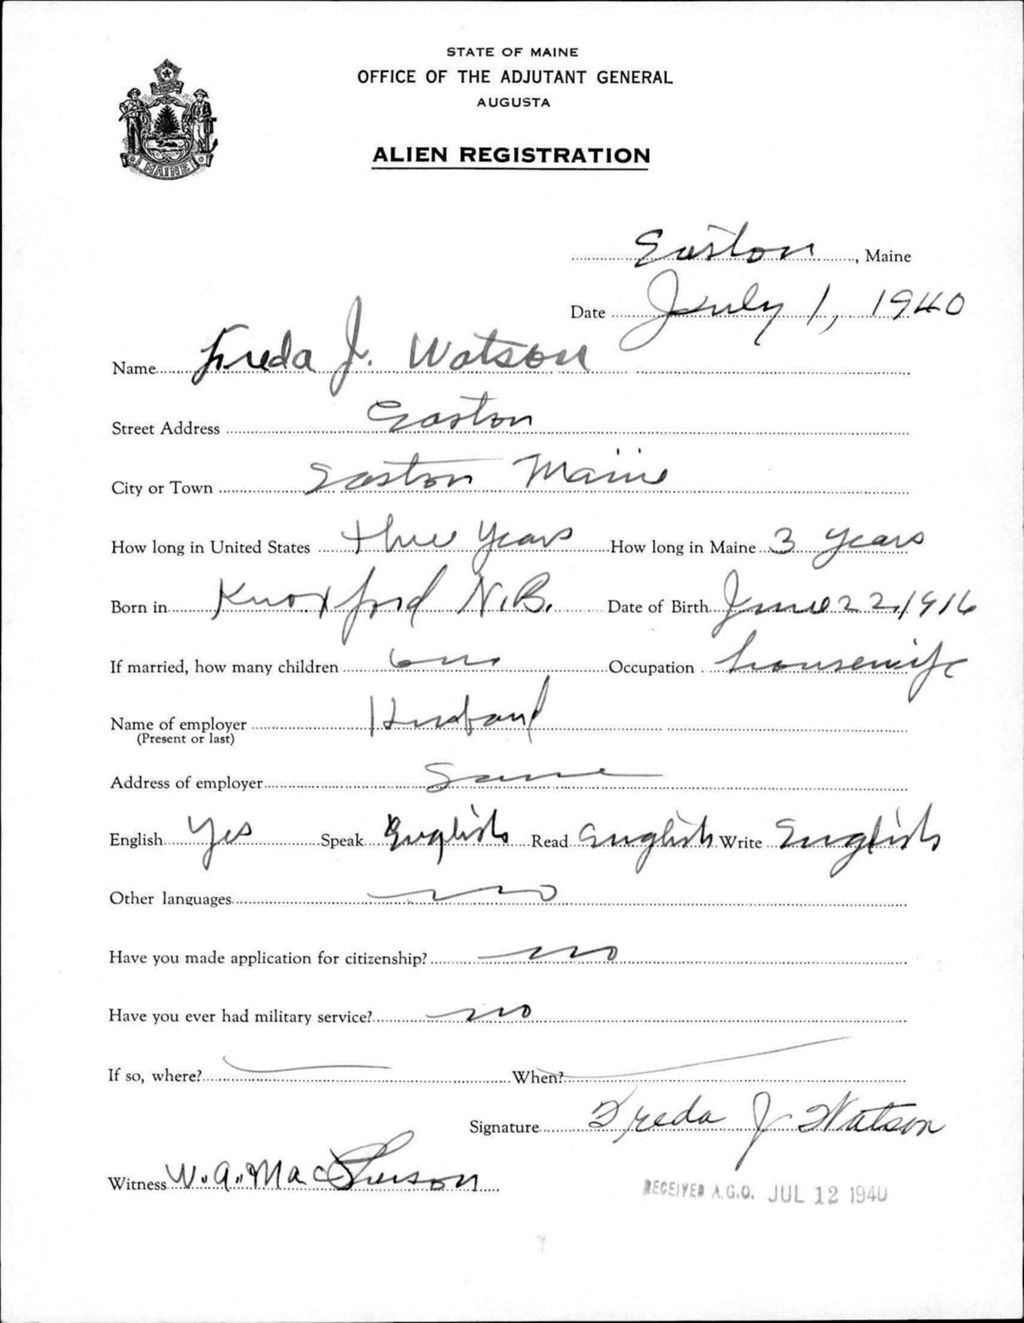 STATE OF MAINE
OFFICE OF THE ADJUTANT GENERAL
AUGUSTA
ALIEN REGISTRATION
MAINE
Easton, Maine
Date July 1, 1940
Name Freda J. Watson
Street Address Easton
City or Town Easton Maine
How long in United States three years How long in Maine 3 years
Born in Knoxford N.B. Date of Birth June 22, 1916
If married, how many children one Occupation housewife
Name of employer Husband
(Present or last)
Address of employer Same
English Yes Speak English Read English Write English
Other languages no
Have you made application for citizenship? no
Have you ever had military service? no
If so, where? When?
Signature Freda J Watson
Witness W.A. MacPherson
RECEIVED A.G.O. JUL 12 1940